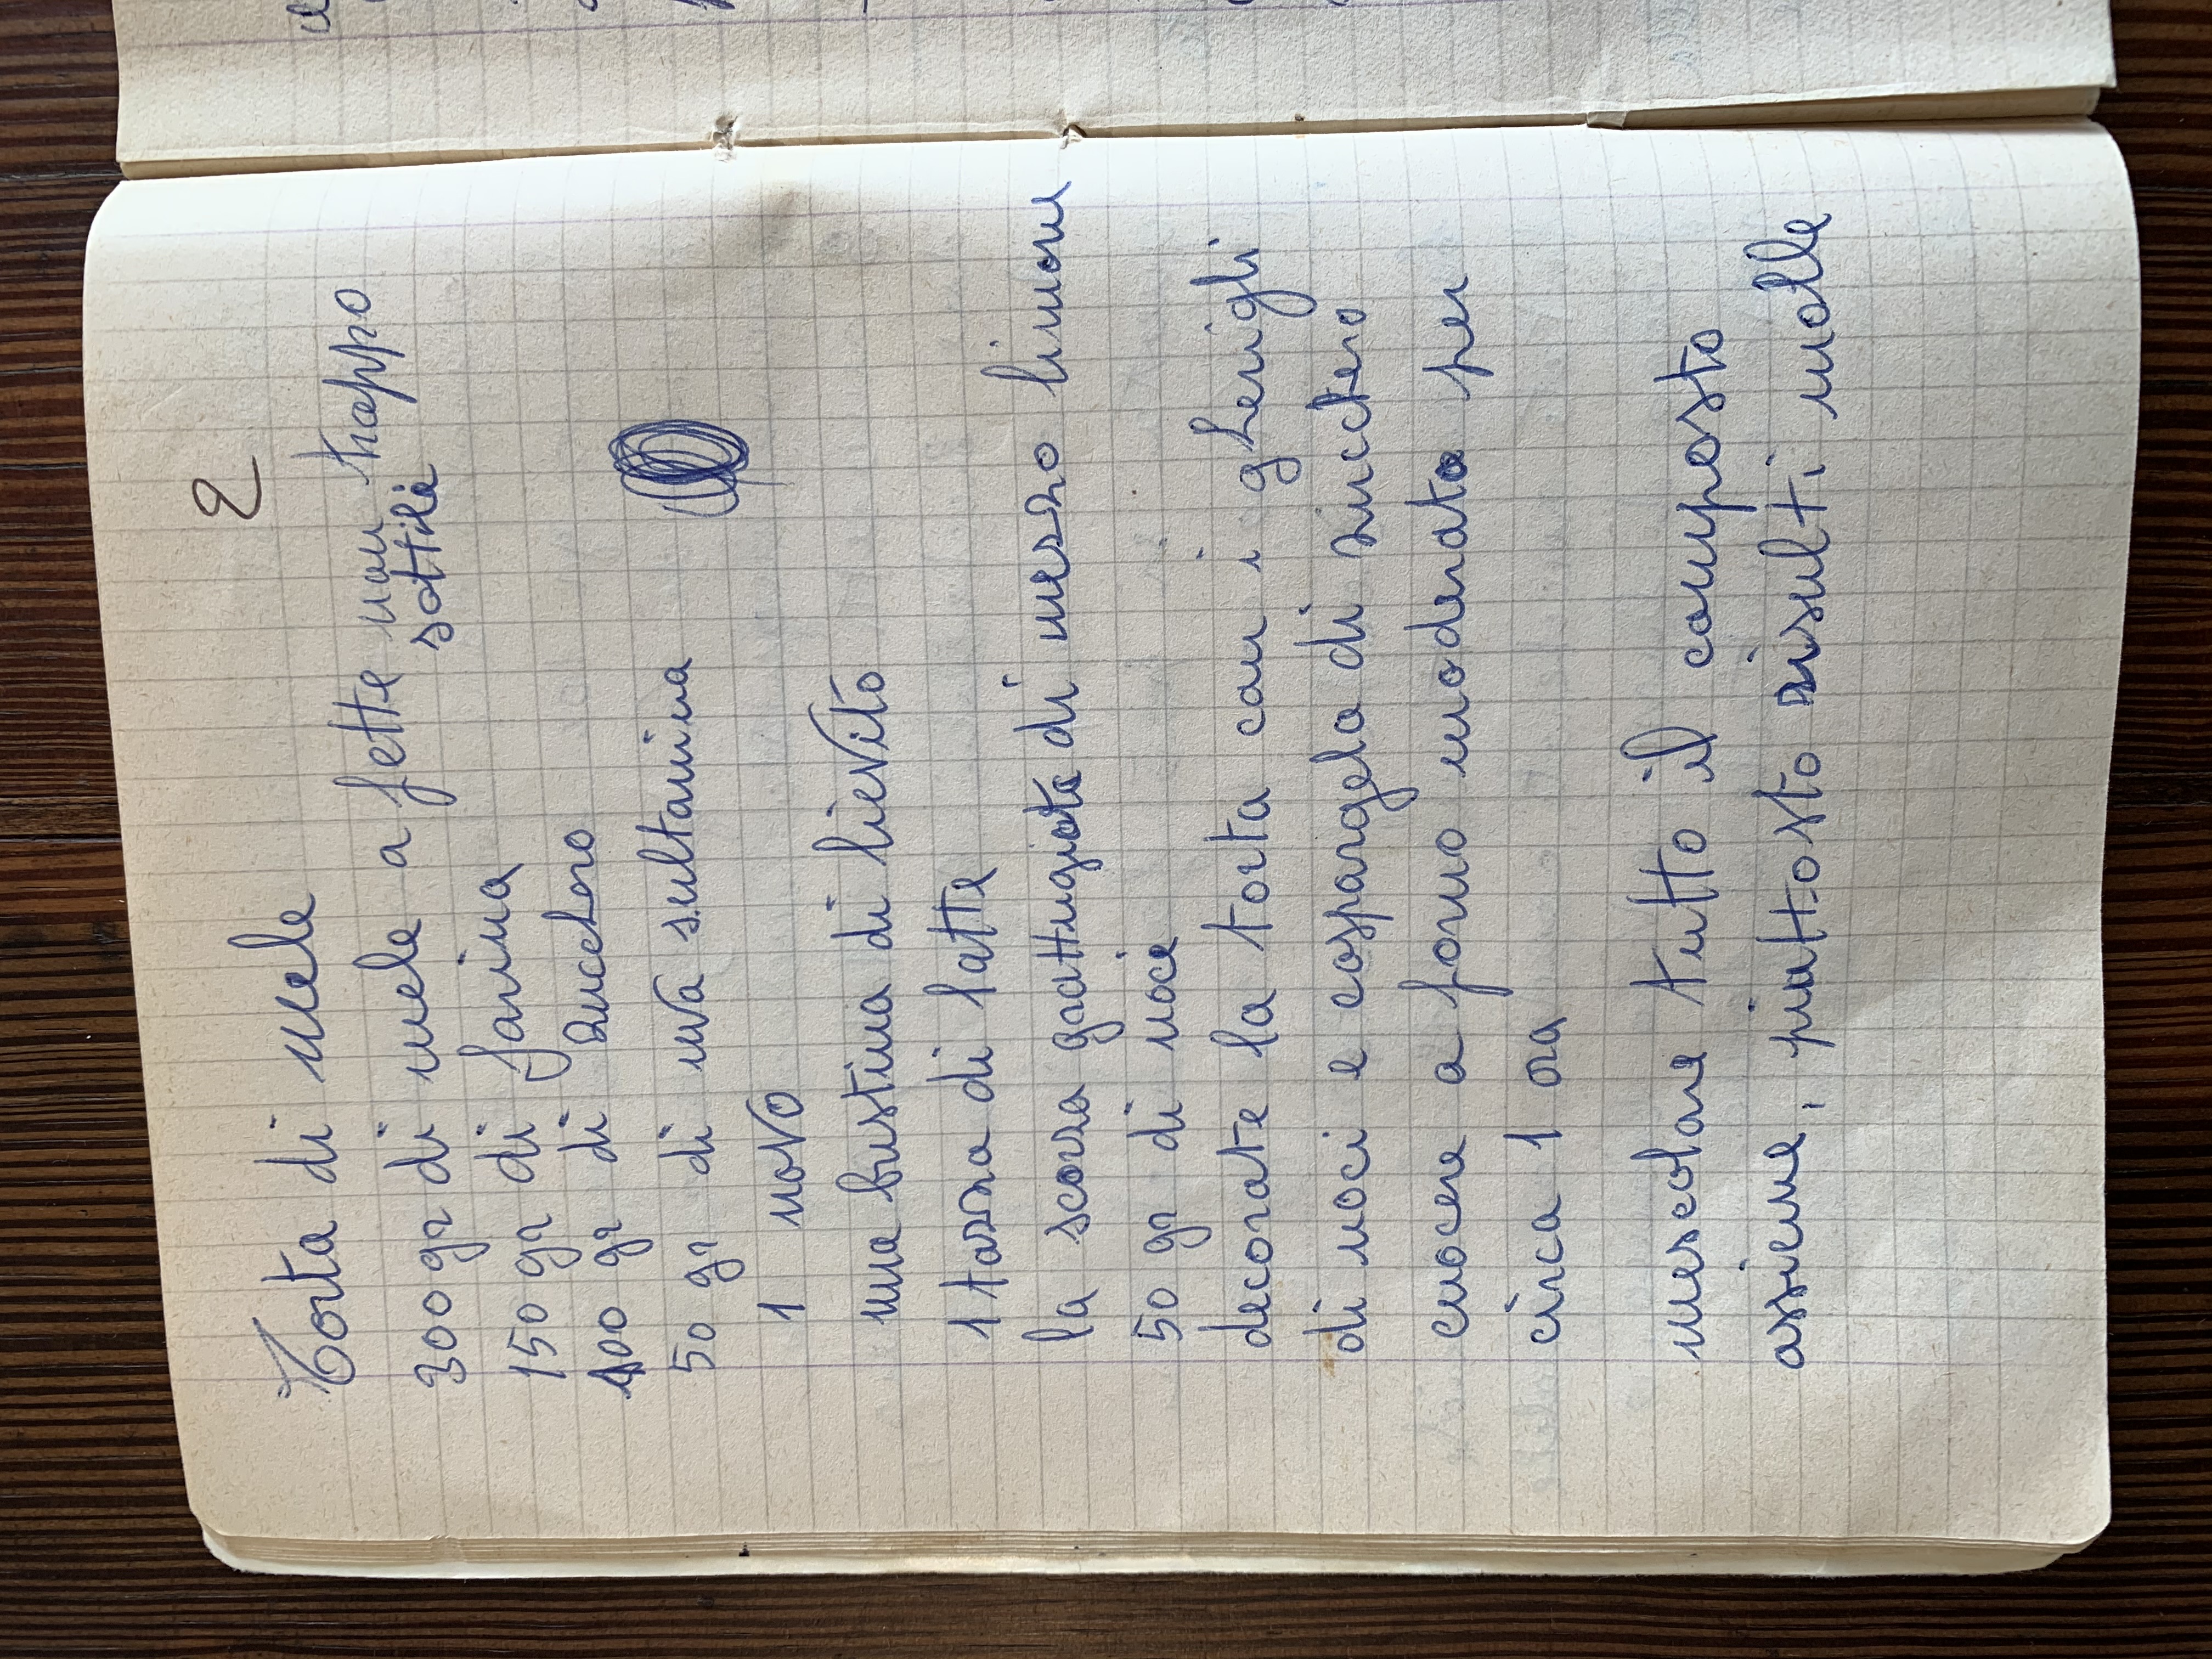 2
Torta di mele
300 gr di mele a fette non troppo
sottili
150 gr di farina
100 gr di zucchero
50 gr di uva sultanina
1 uovo
una bustina di lievito
1 tazza di latte
la scorza grattugiata di mezzo limone
50 gr di noci
decorate la torta con i gherigli
di noci e cospargela di zucchero
cuocere a forno moderato per
circa 1 ora
mescolare tutto il composto
assieme, piuttosto risulti molle